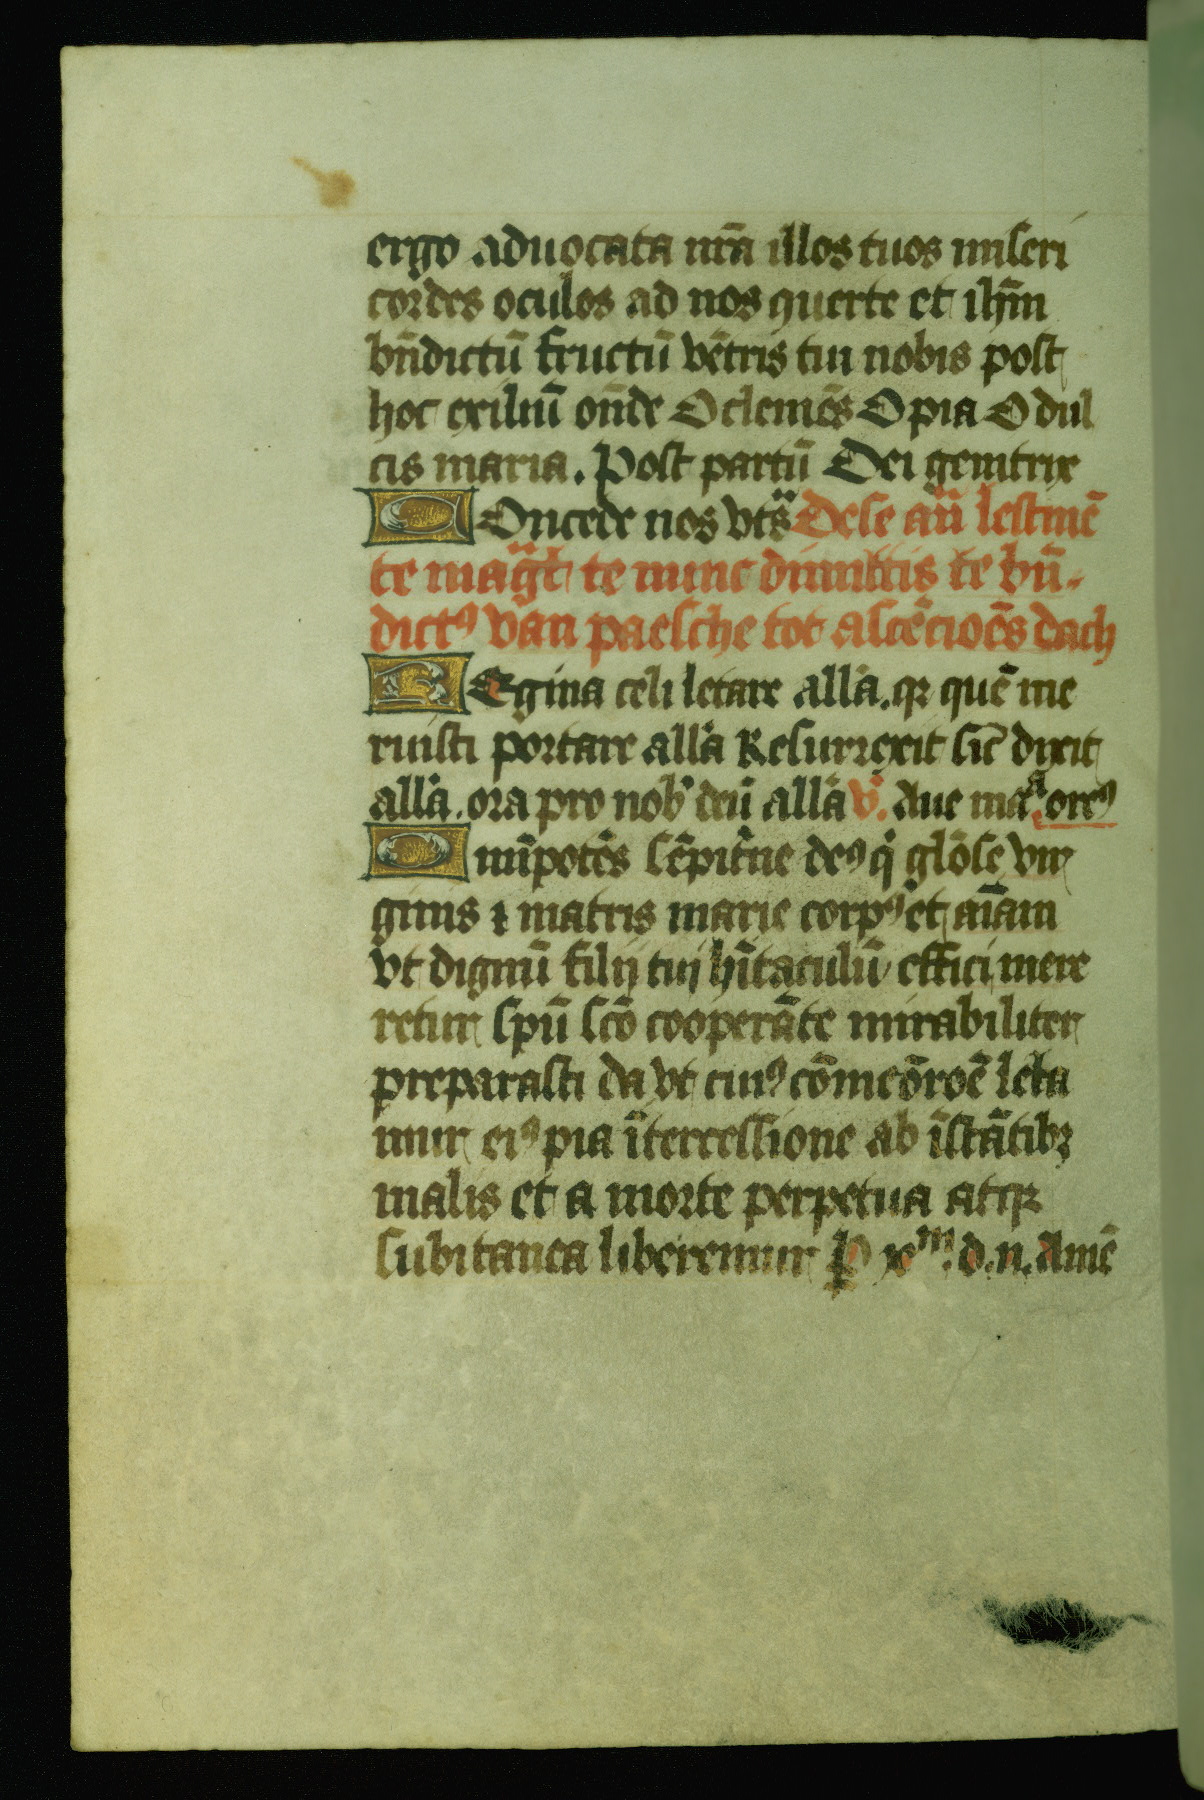 ergo aduocata nr̄a illos tuos miseri
cordes oculos ad nos ꝯuerte et ih̄m
bn̄dictū fructū vētris tui nobis post
hoc exiliū on̄de O clemēs O pia O dul
cis maria. Post partū Dei genitrix
COncede nos vt sͣ Dese an̄ lestmē
te magͣt te nunc dimittis te bn̄
dictꝰ van paesche tot ascēcioēs dach
REgina celi letare all̄a. qꝛ quē me
ruisti portare all̄a Resurrexit sic̄ dixit
all̄a. ora pro nob̾ deū all̄a v̾. Aue maͣ. oreꝰ
Omīpotēs sēpit̾ne deꝰ qͥ gl̄ose vir
ginis ⁊ matris marie corpꝰ et aīam
vt dignū filij tuj hītaculū effici mere
retur sp̄u sc̄o cooperāte mirabiliter
preparasti da vt cuiꝰ cōmeōroē leta
mur eiꝰ pia ītercessione ab īstātibꝫ
malis et a morte perpetua atqꝫ
subitanea liberemur ꝑ xᵐ. d. n. Amē